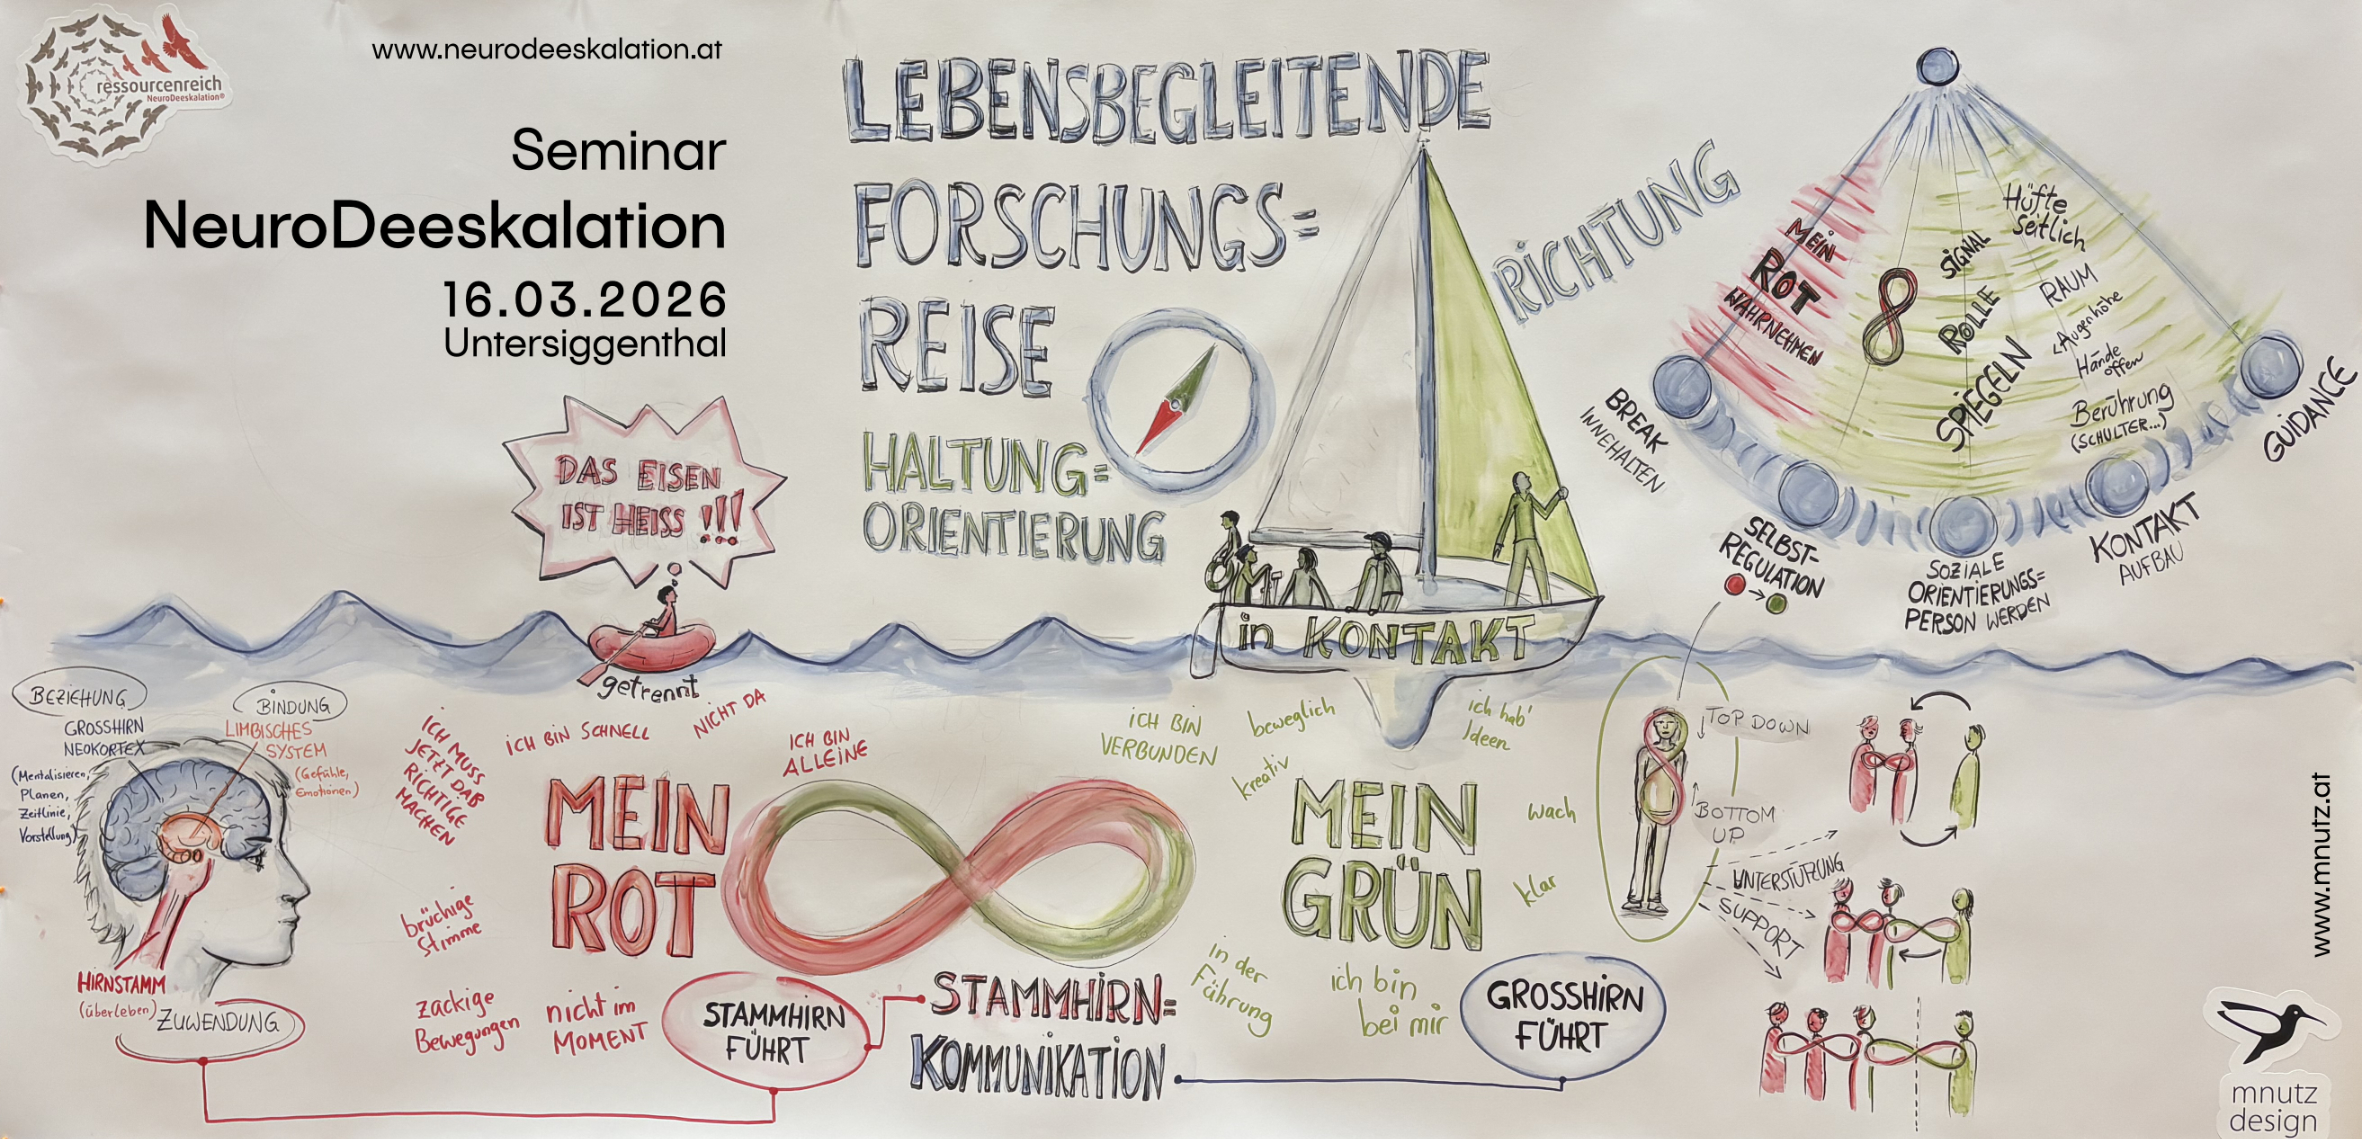 ressourcenreich
NeuroDeeskalation®
www.neurodeeskalation.at
Seminar
NeuroDeeskalation
16.03.2026
Untersiggenthal
LEBENSBEGLEITENDE
FORSCHUNGS=
REISE
HALTUNG=
ORIENTIERUNG
RICHTUNG
DAS EISEN
IST HEISS !!!
getrennt
in KONTAKT
MEIN
ROT
WAHRNEHMEN
SIGNAL
ROLLE
SPIEGELN
Hüfte
seitlich
RAUM
Augenhöhe
Hände
offen
Berührung
(SCHULTER...)
BREAK
INNEHALTEN
SELBST-
REGULATION
SOZIALE
ORIENTIERUNGS=
PERSON WERDEN
KONTAKT
AUFBAU
GUIDANCE
BEZIEHUNG
GROSSHIRN
NEOKORTEX
(Mentalisieren,
Planen,
Zeitlinie,
Vorstellung)
BINDUNG
LIMBISCHES
SYSTEM
(Gefühle,
Emotionen)
HIRNSTAMM
(überleben)
ZUWENDUNG
ICH MUSS
JETZT DAß
RICHTIGE
MACHEN
iCH BiN SCHNELL
NICHT DA
ICH BIN
ALLEINE
MEIN
ROT
brüchige
Stimme
zackige
Bewegungen
nicht im
MOMENT
STAMMHIRN
FÜHRT
STAMMHIRN=
KOMMUNIKATION
iCH BIN
VERBUNDEN
beweglich
kreativ
ich hab'
Ideen
MEIN
GRÜN
wach
klar
in der
Führung
ich bin
bei mir
GROSSHIRN
FÜHRT
TOP DOWN
BOTTOM
UP
UNTERSTÜTZUNG
SUPPORT
www.mnutz.at
mnutz
design